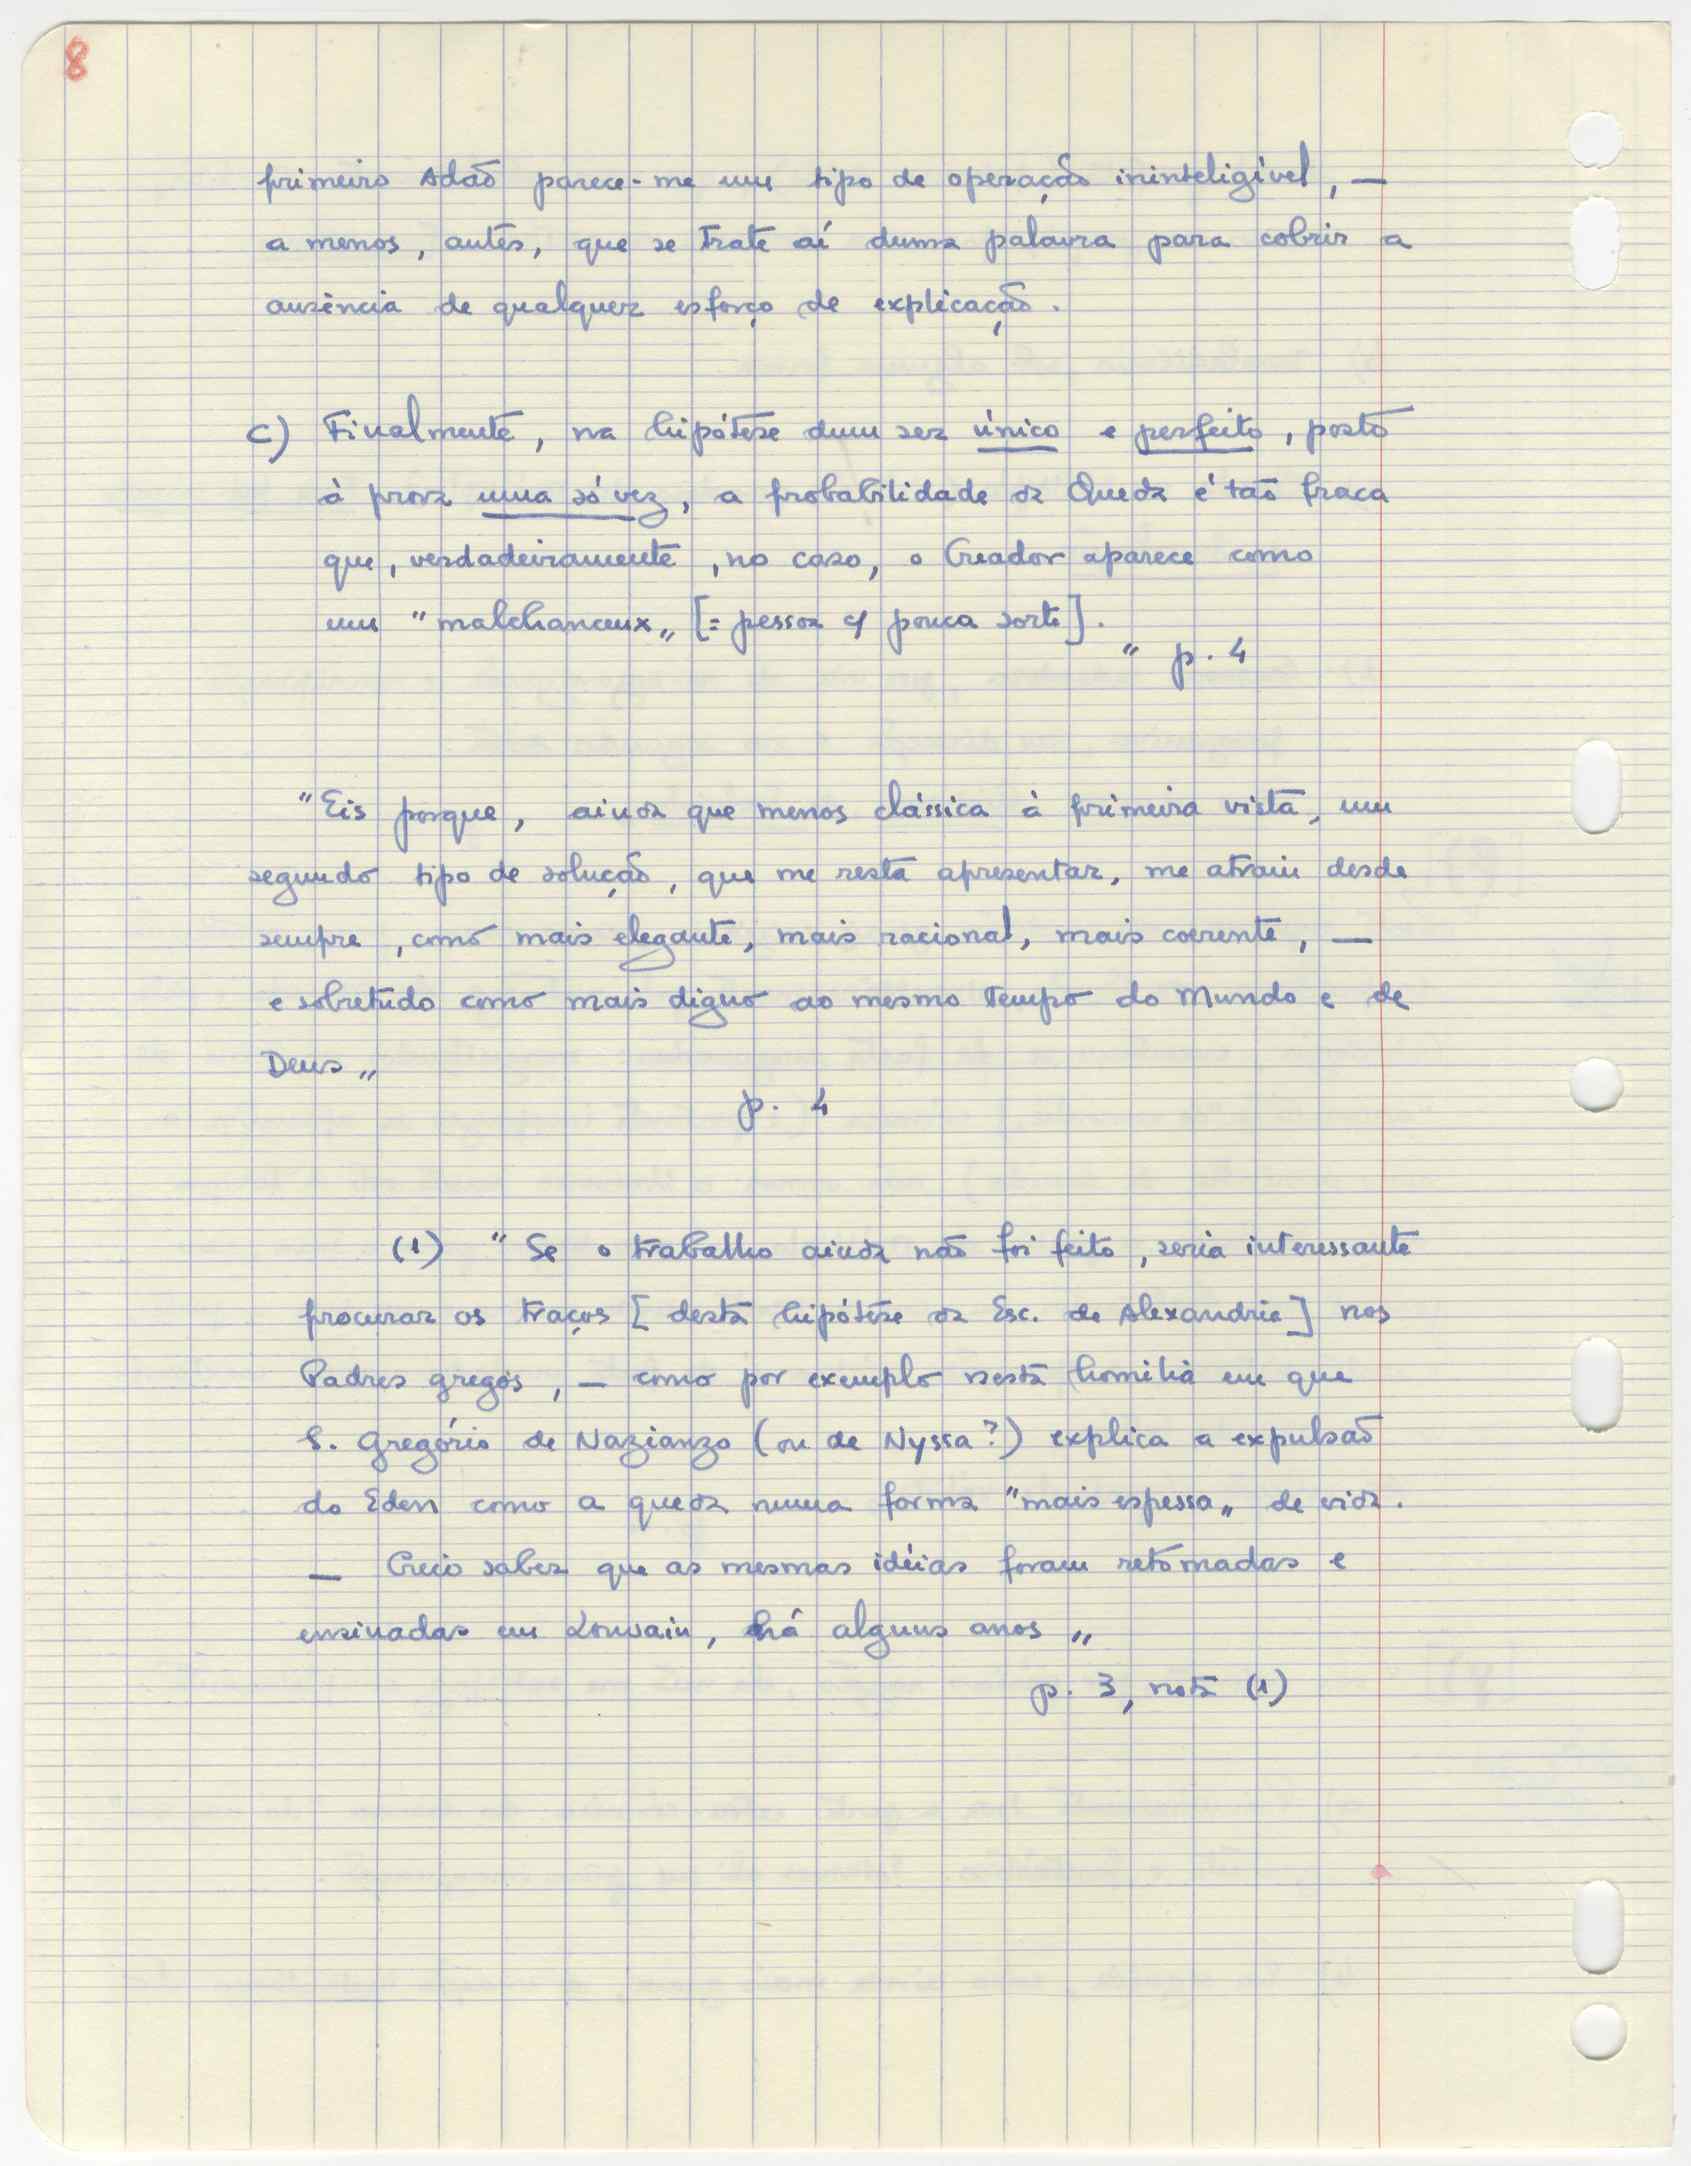 8
primeiro Adão parece-me um tipo de operação ininteligível, —
a menos, antes, que se trate aí duma palavra para cobrir a
ausência de qualquer esforço de explicação.
c) Finalmente, na hipótese dum ser único e perfeito, posto
à prova uma só vez, a probabilidade da Queda é tão fraca
que, verdadeiramente, no caso, o Creador aparece como
um "malchanceux„ [= pessoa c/ pouca sorte].
" p. 4
"Eis porque, ainda que menos clássica à primeira vista, um
segundo tipo de solução, que me resta apresentar, me atraiu desde
sempre, como mais elegante, mais racional, mais coerente, —
e sobretudo como mais digno ao mesmo tempo do Mundo e de
Deus„
p. 4
(1) "Se o trabalho ainda não foi feito, seria interessante
procurar os traços [desta hipótese da Esc. de Alexandria] nos
Padres gregos, — como por exemplo nesta homilia em que
S. Gregório de Nazianzo (ou de Nyssa?) explica a expulsão
do Eden como a queda numa forma "mais espessa„ de vida.
— Creio saber que as mesmas idéias foram retomadas e
ensinadas em Louvain, há alguns anos„
p. 3, nota (1)